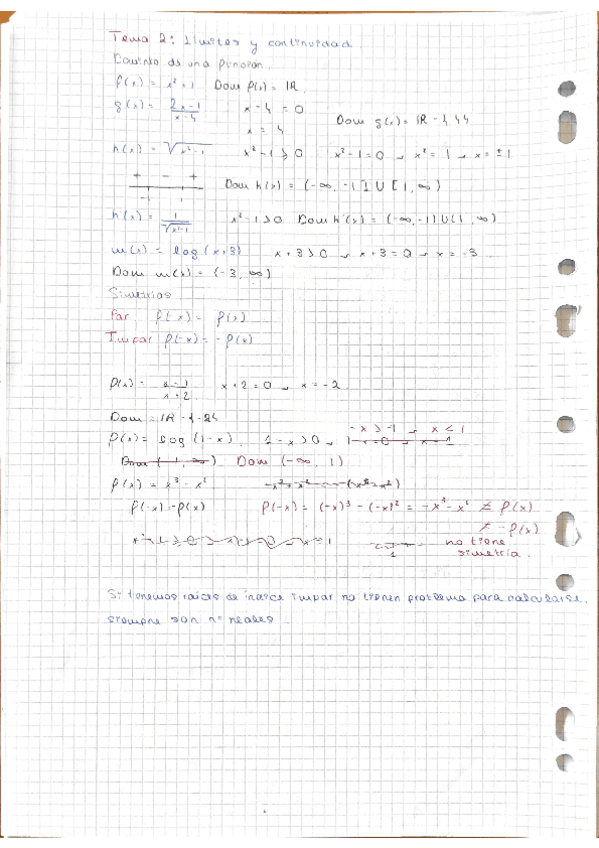 Tema 2: Límites y continuidad
Dominio de una función.
f(x) = x² + 1   Dom f(x) = IR.
g(x) = (2x-1)/(x-4)   x-4 = 0
x = 4   Dom g(x) = IR - {4}
h(x) = √(x²-1)   x²-1 ≥ 0   x²-1 = 0 → x² = 1 → x = ±1
+ - +
-1 1   Dom h(x) = (-∞, -1] U [1, ∞)
h(x) = 1/√(x²-1)   x²-1 > 0   Dom h(x) = (-∞, -1) U (1, ∞)
m(x) = log (x+3)   x+3 > 0 → x+3 = 0 → x = -3.
Dom m(x) = (-3, ∞)
Simetrías
Par   f(-x) = f(x)
Impar   f(-x) = -f(x)
f(x) = (x-1)/(x+2)   x+2 = 0 → x = -2
Dom = IR - {-2}
-x > -1 → x < 1
f(x) = log (1-x)   1-x > 0 → 1-x=0 → x=1
Dom (1, ∞)   Dom (-∞, 1)
f(x) = x³ - x²
f(-x) = -f(x)   f(-x) = (-x)³ - (-x)² = -x³ - x² ≠ f(x)
≠ -f(x)
no tiene
simetría.
Si tenemos raíces de índice impar no tienen problema para calcularse,
siempre son nº reales